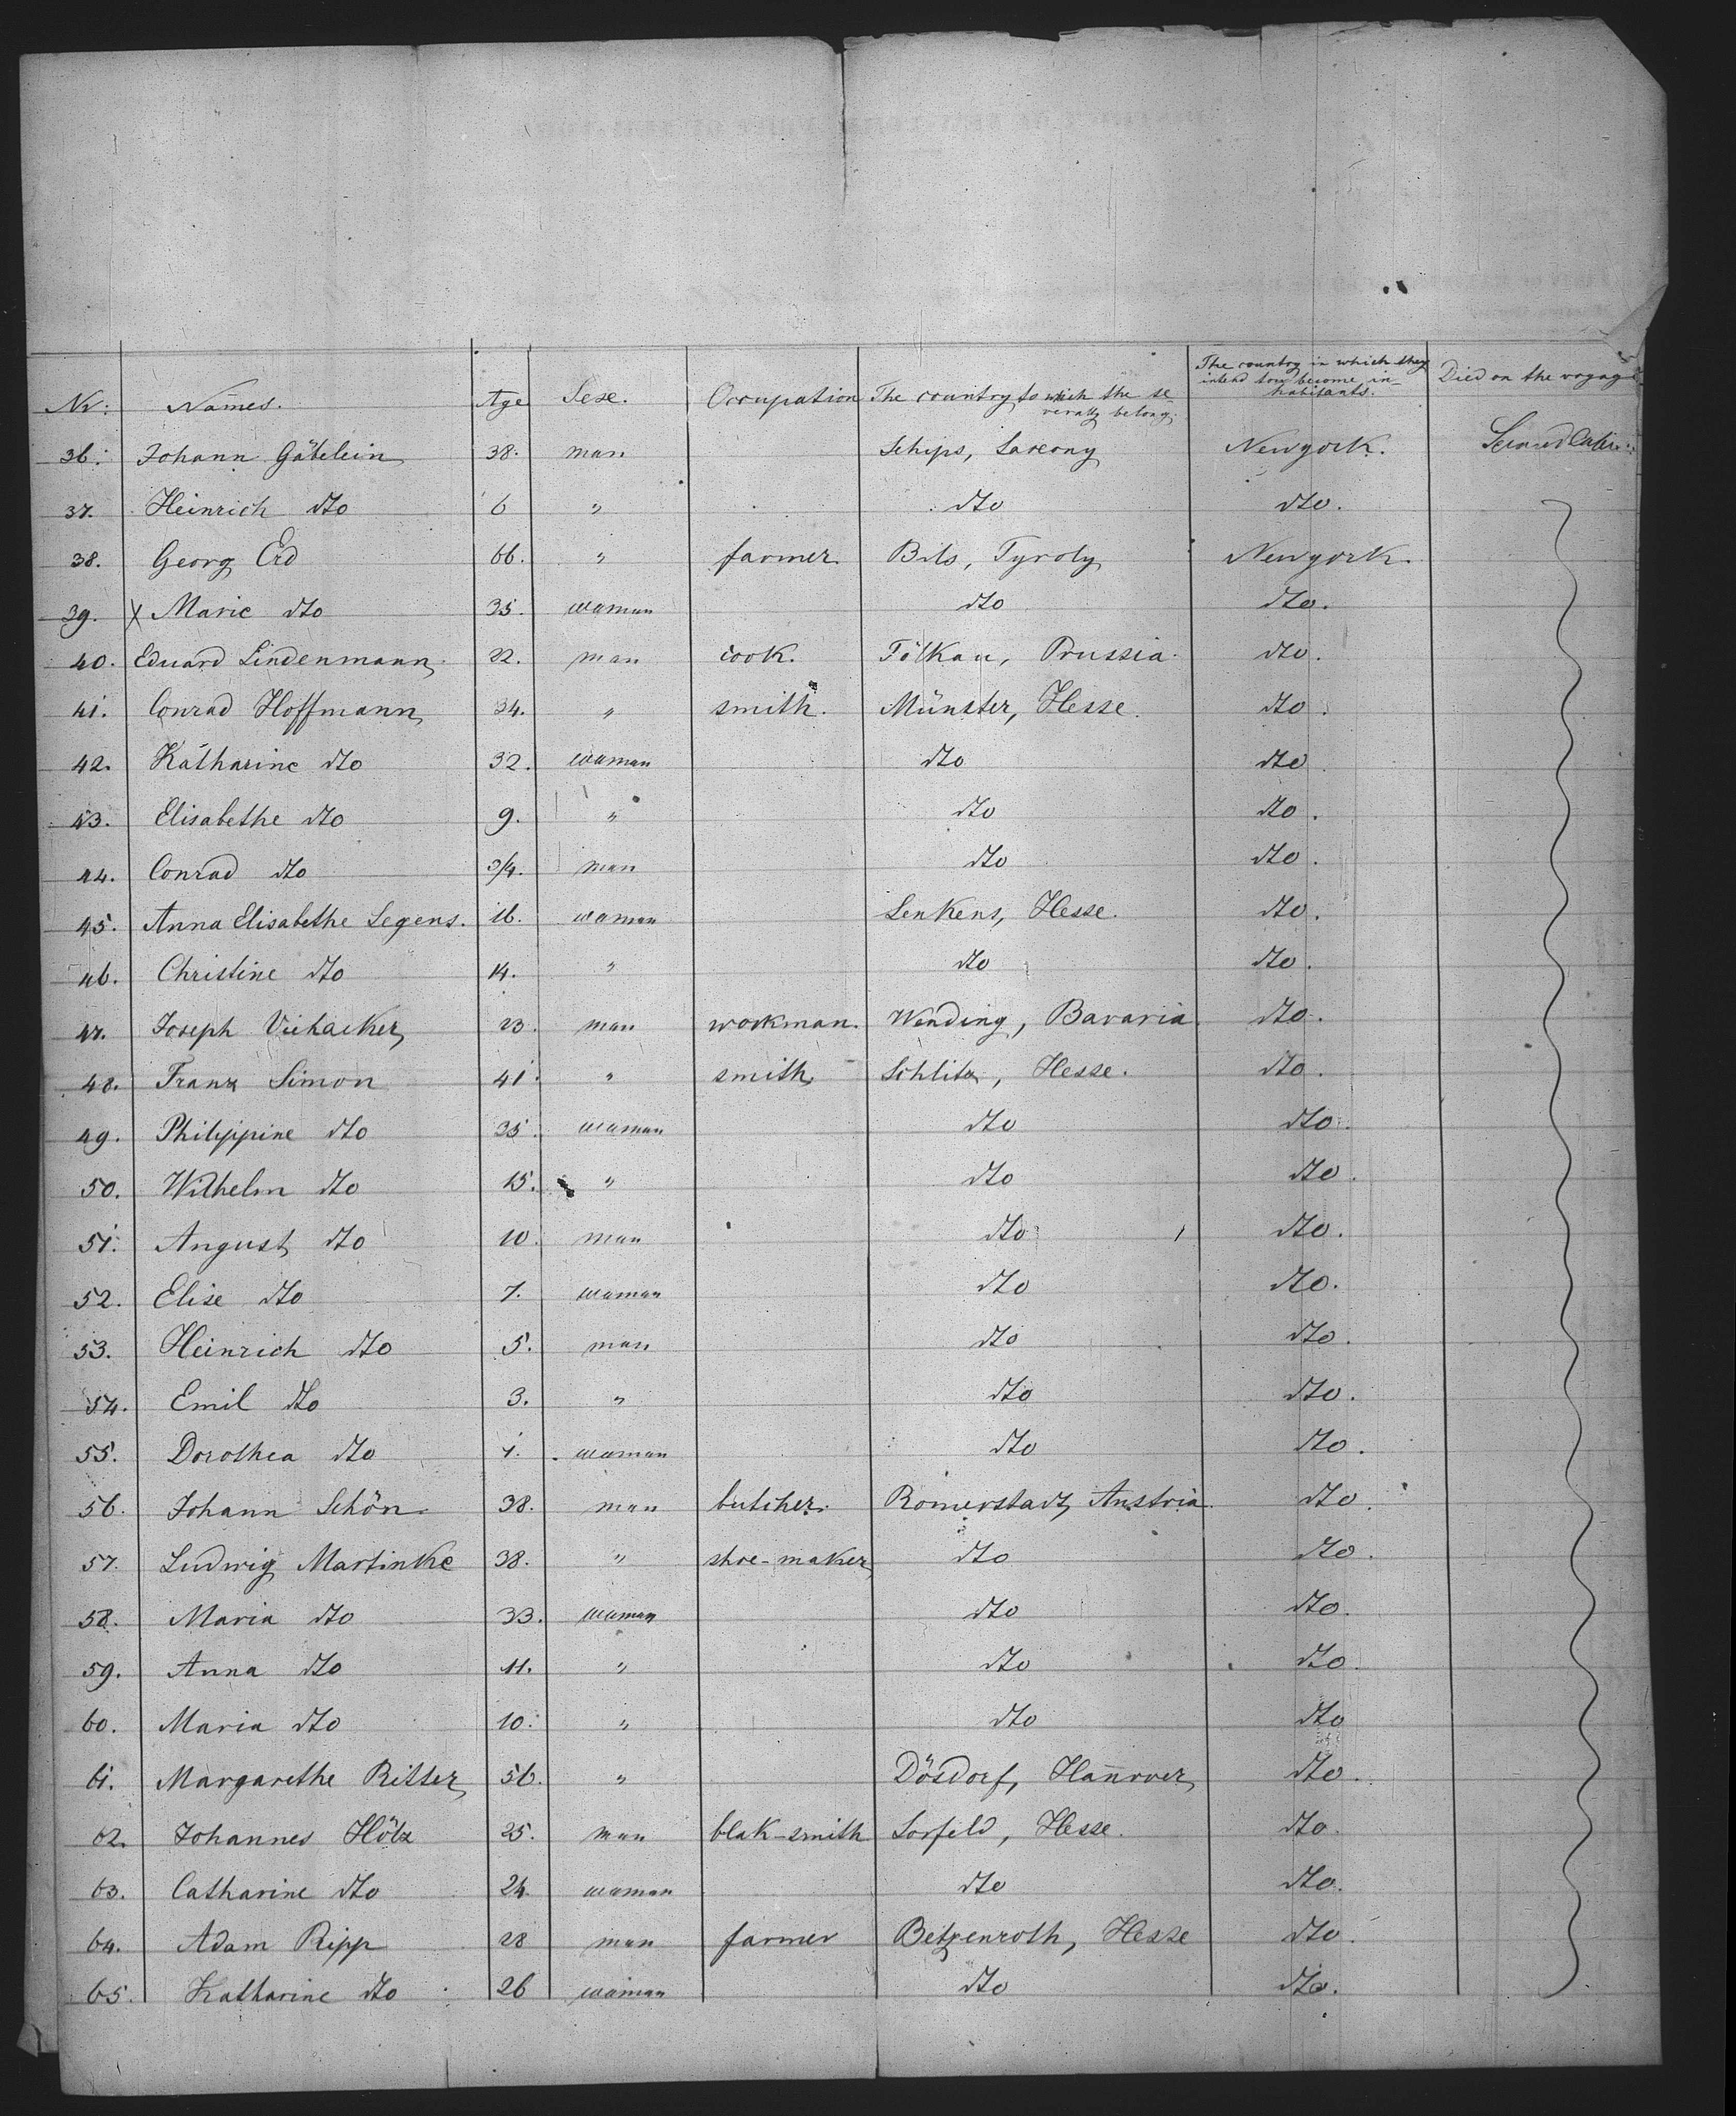 Nr: Names. Age Sexe. Occupation The country to which the severally belong. The country in which they intend tow become inhabitants. Died on the voyage
36. Johann Gäbelein 38. man Schips, Saxony Newyork. Second Cabin
37. Heinrich dto 6 " dto dto.
38. Georg Erd 66. " farmer Bils, Tyroly Newyork.
39. X Marie dto 35. waman dto dto.
40. Eduard Lindenmann 22. man cook. Fölkau, Prussia dto.
41. Conrad Hoffmann 34. " smith. Münster, Hesse. dto.
42. Katharine dto 32. waman dto dto
43. Elisabethe dto 9. " dto dto.
44. Conrad dto 3/4. man dto dto.
45. Anna Elisabethe Legens. 16. waman Lenkens, Hesse. dto.
46. Christine dto 14. " dto dto.
47. Joseph Viehacker 23. man workman. Wending, Bavaria dto.
48. Franz Simon 41. " smith Schlitz, Hesse. dto.
49. Philippine dto 35. waman dto dto.
50. Wilhelm dto 15. " dto dto.
51. August dto 10. man dto dto.
52. Elise dto 7. waman dto dto.
53. Heinrich dto 5. man dto dto.
54. Emil dto 3. " dto dto.
55. Dorothea dto waman dto dto.
56. Johann Schön 38. man butcher. Romerstadt, Austria. dto.
57. Ludwig Martinke 38. " shoe-maker dto dto.
58. Maria dto 33. waman dto dto.
59. Anna dto 11. " dto dto.
60. Maria dto 10. " dto dto
61. Margarethe Ritter 56. " Dösdorf, Hannover dto.
62. Johannes Hölz 25. man blak-smith Lorfeld, Hesse. dto.
63. Catharine dto 24. waman dto dto.
64. Adam Ripp 28 man farmer Betzenroth, Hesse dto.
65. Katharine dto 26 waman dto dto.